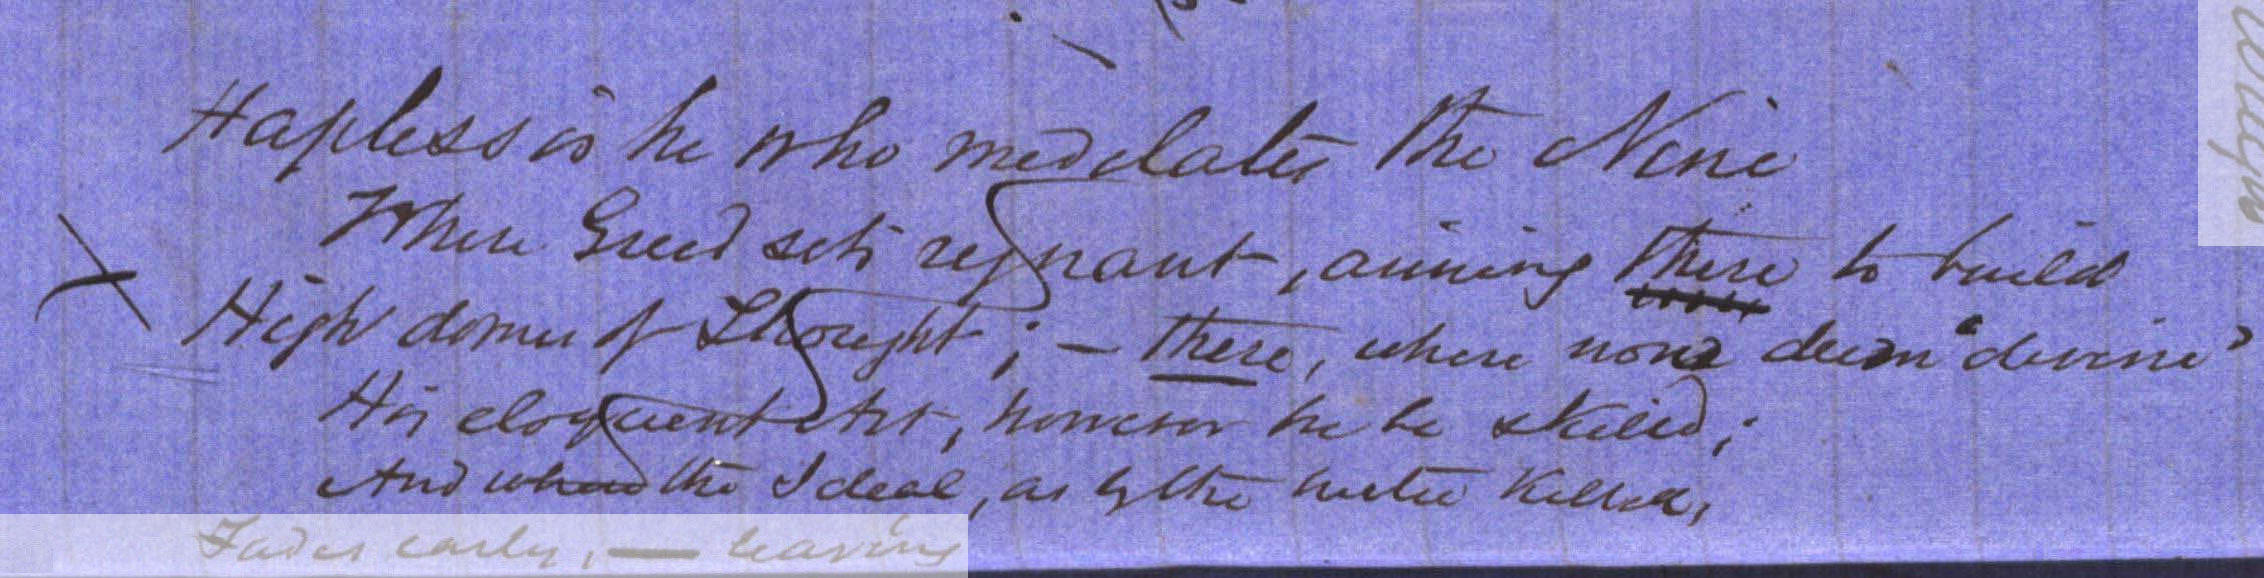 Hapless is he who meditates the Nine
Where Greed sits regnant, aiming there to build
High domes of Thought; — there, where none deem "divine"
His eloquent Art, however he be skilled;
And where the Ideal, as by the kilted,
Fades early, — leaving